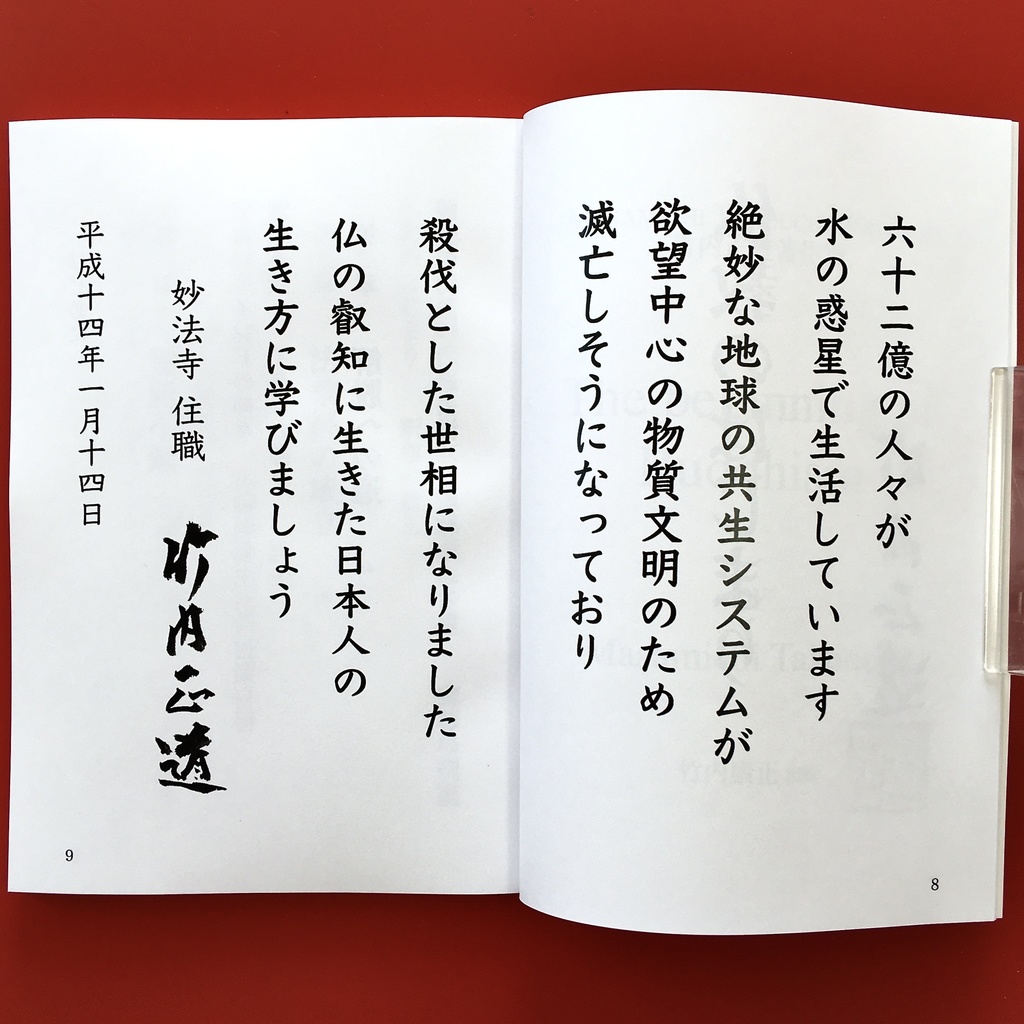 六十二億の人々が
水の惑星で生活しています
絶妙な地球の共生システムが
欲望中心の物質文明のため
滅亡しそうになっており
8
殺伐とした世相になりました
仏の叡知に生きた日本人の
生き方に学びましょう
妙法寺 住職
平成十四年一月十四日
9